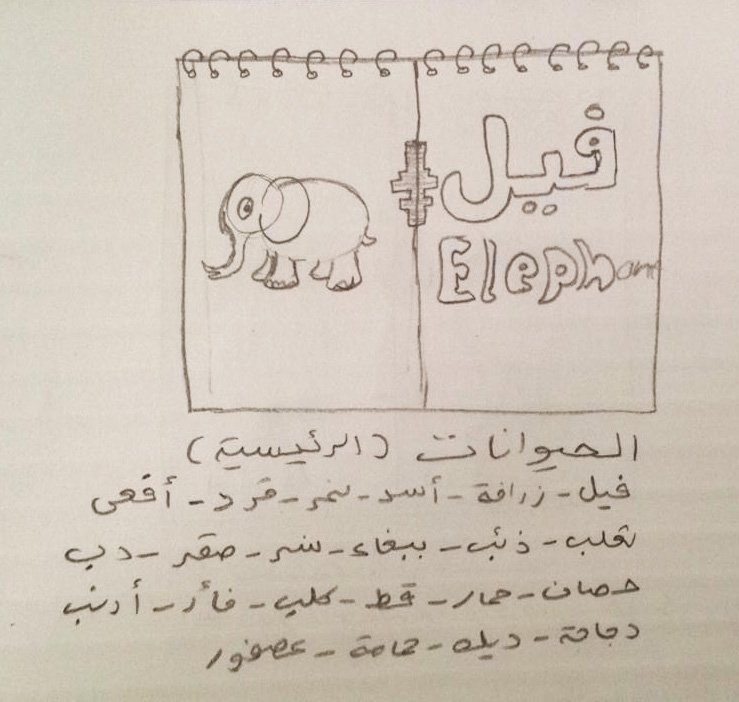 فيل
Elephant
الحيوانات (الرئيسية)
فيل - زرافة - أسد - نمر - قرد - أفعى
ثعلب - ذئب - ببغاء - نسر - صقر - دب
حصان - حمار - قط - كلب - فأر - أرنب
دجاجة - ديك - حمامة - عصفور